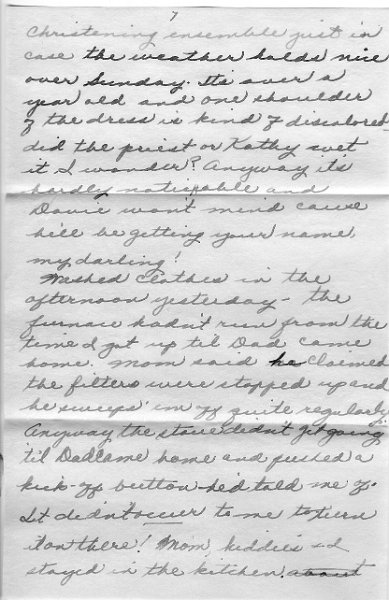 7
Christening ensemble just in
case the weather holds nice
over Sunday. Its over a
year old and one shoulder
of the dress is kind of discolored
did the priest or Kathy swet
it I wonder? Anyway it's
hardly noticable and
Davie won't mind cause
he'll be getting your name
my darling!
Washed clothes in the
afternoon yesterday - the
furnace hadn't run from the
time I got up til Dad came
home. Mom said he claimed
the filters were stopped up and
he sweeps 'em off quite regularly.
Anyway the stove didn't get going
til Dad came home and pushed a
kick-off button he'd told me of.
It didn't occur to me to turn
it on there! Mom, kiddies & I
stayed in the kitchen. about